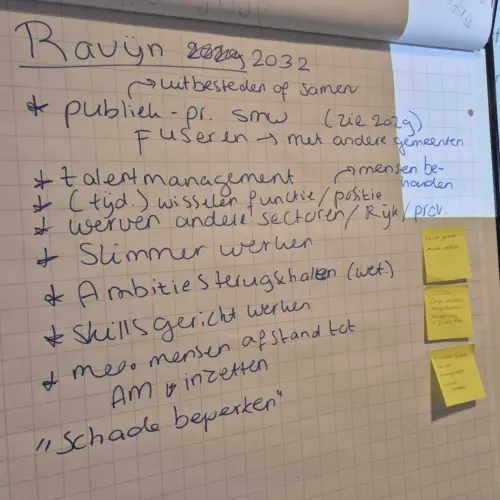 Ravijn 2032
→ uitbesteden of samen
* publiek-pr. smw (zie 2029)
Fuseren → met andere gemeenten
* talentmanagement → mensen behouden
* (tijd.) wisselen functie/positie
* werven andere sectoren/Rijk/prov.
* Slimmer werken
* Ambities terugschalen (wet.)
* Skillsgericht werken
* mee. mensen afstand tot
AM inzetten
"Schade beperken"